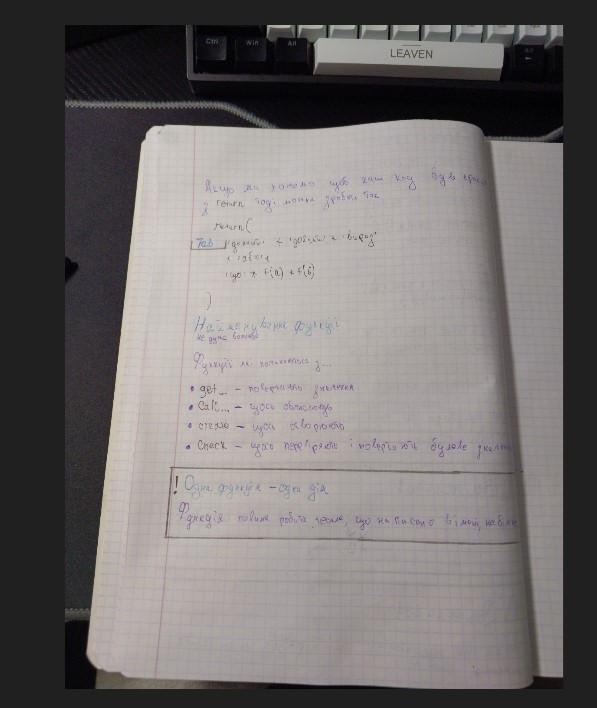 Ctrl
Win
Alt
LEAVEN
Alt
Якщо ми хочемо щоб наш код був
з return тоді можна зробити так
return(
Tab
+ f(a) + f(b)
)
Найменування функцій
не дуже
Функції які починаються з...
get... – повертають значення
Calc... – щось обчислюють
create – щось створюють
Check – щось перевіряють і повертають булеве
! Одна функція – одна дія
Функція повинна робити що написано в імені, не більше